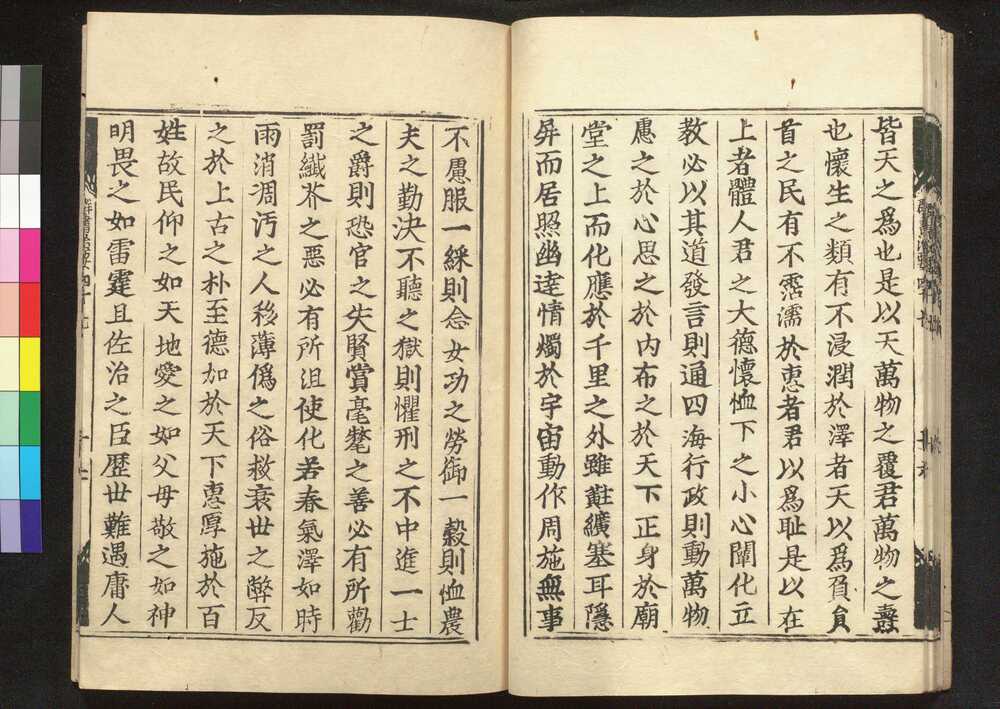 皆天之爲也是以天萬物之覆君萬物之燾
也懷生之類有不浸潤於澤者天以爲負負
首之民有不霑濡於惠者君以爲恥是以在
上者體人君之大德懷恤下之小心闡化立
教必以其道發言則通四海行政則動萬物
慮之於心思之於內布之於天下正身於廟
堂之上而化應於千里之外雖黈纊塞耳隱
屏而居照幽達情燭於宇宙動作周施無事
不慮服一綵則念女功之勞御一穀則恤農
夫之勤決不聽之獄則懼刑之不中進一士
之爵則恐官之失賢賞毫氂之善必有所勸
罰纖芥之惡必有所沮使化若春氣澤如時
雨消凋汚之人移薄僞之俗救衰世之弊反
之於上古之朴至德加於天下惠厚施於百
姓故民仰之如天地愛之如父母敬之如神
明畏之如雷霆且佐治之臣歷世難遇庸人